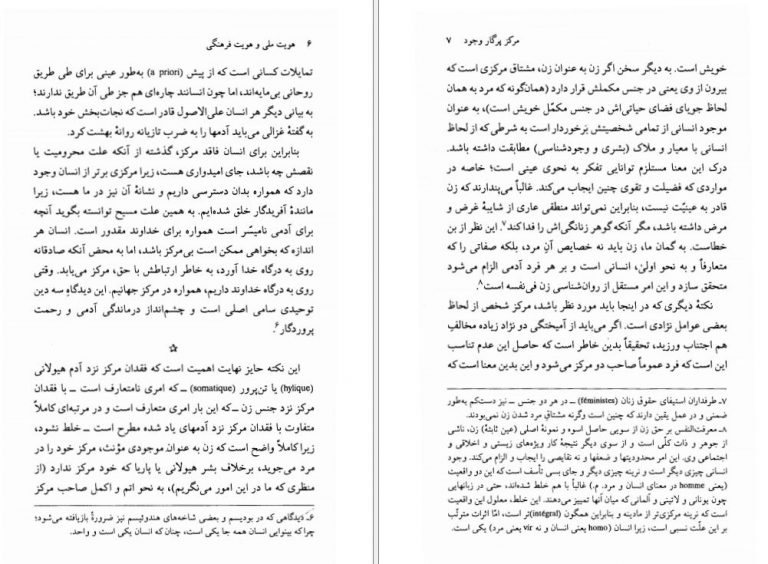 ۶ هویت ملی و هویت فرهنگی
تمایلات کسانی است که از پیش (a priori) به‌طور عینی برای طی طریق
روحانی بی‌مایه‌اند، اما چون انسانند چاره‌ای هم جز طی آن طریق ندارند؛
به بیانی دیگر هر انسان علی‌الاصول قادر است که نجات‌بخش خود باشد.
به گفتهٔ غزالی می‌باید آدمها را به ضرب تازیانه روانهٔ بهشت کرد.
بنابراین برای انسان فاقد مرکز، گذشته از آنکه علت محرومیت یا
نقصش چه باشد، جای امیدواری هست، زیرا مرکزی برتر از انسان وجود
دارد که همواره بدان دسترسی داریم و نشانهٔ آن نیز در ما هست، زیرا
مانندهٔ آفریدگار خلق شده‌ایم. به همین علت مسیح توانسته بگوید آنچه
برای آدمی نامیسّر است همواره برای خداوند مقدور است. انسان هر
اندازه که بخواهی ممکن است بی‌مرکز باشد، اما به محض آنکه صادقانه
روی به درگاه خدا آورد، به خاطر ارتباطش با حق، مرکز می‌یابد. وقتی
روی به درگاه خداوند داریم، همواره در مرکز جهانیم. این دیدگاهِ سه دین
توحیدی سامی اصلی است و چشم‌انداز درماندگی آدمی و رحمت
پروردگار.۶
☆
این نکته حایز نهایت اهمیت است که فقدان مرکز نزد آدم هیولانی
(hylique) یا تن‌پرور (somatique) ـ که امری نامتعارف است ـ با فقدان
مرکز نزد جنس زن ـ که این بار امری متعارف است و در مرتبه‌ای کاملاً
متفاوت با فقدان مرکز نزد آدمهای یاد شده مطرح است ـ خلط نشود،
زیرا کاملاً واضح است که زن به عنوان موجودی مؤنث، مرکز خود را در
مرد می‌جوید، برخلاف بشر هیولانی یا پاریا که خود مرکز ندارد (از
منظری که ما در این امور می‌نگریم)، به نحو اتم و اکمل صاحب مرکز
۶ـ دیدگاهی که در بودیسم و بعضی شاخه‌های هندوئیسم نیز ضرورةً بازیافته می‌شود؛
چرا که بینوایی انسان همه جا یکی است، چنان که انسان یکی است و واحد.
مرکز پرگار وجود ۷
خویش است. به دیگر سخن اگر زن به عنوان زن، مشتاق مرکزی است که
بیرون از وی یعنی در جنس مکملش قرار دارد (همان‌گونه که مرد به همان
لحاظ جویای فضای حیاتی‌اش در جنس مکمّل خویش است)، به عنوان
موجود انسانی از تمامی شخصیتش برخوردار است به شرطی که از لحاظ
انسانی با معیار و ملاک (بشری و وجودشناسی) مطابقت داشته باشد.
درک این معنا مستلزم توانایی تفکر به نحوی عینی است؛ خاصه در
مواردی که فضیلت و تقوی چنین ایجاب می‌کند. غالباً می‌پندارند که زن
قادر به عینیّت نیست، بنابراین نمی‌تواند منطقی عاری از شایبهٔ غرض و
مرض داشته باشد، مگر آنکه گوهر زنانگی‌اش را فدا کند.۷ این نظر از بن
خطاست. به گمان ما، زن باید نه خصایص آنِ مرد، بلکه صفاتی را که
متعارفاً و به نحو اولیٰ، انسانی است و بر هر فرد آدمی الزام می‌شود
متحقق سازد و این امر مستقل از روان‌شناسی زن فی‌نفسه است.۸
نکتهٔ دیگری که در اینجا باید مورد نظر باشد، مرکز شخص از لحاظ
بعضی عوامل نژادی است. اگر می‌باید از آمیختگی دو نژاد زیاده مخالفِ
هم اجتناب ورزید، تحقیقاً بدین خاطر است که حاصل این عدم تناسب
این است که فرد عموماً صاحب دو مرکز می‌شود و این بدین معنا است که
۷ـ طرفداران استیفای حقوق زنان (féministes) ـ در هر دو جنس ـ نیز دست‌کم به‌طور
ضمنی و در عمل یقین دارند که چنین است وگرنه مشتاق مرد شدن زن نمی‌بودند.
۸ـ معرفت‌النفس بر حق زن از سویی حاصل اسوه و نمونهٔ اصلی (عین ثابتهٔ) زن، ناشی
از جوهر و ذات کلّی است و از سوی دیگر نتیجهٔ کار ویژه‌های زیستی و اخلاقی و
اجتماعی وی. این امر محدودیتها و ضعفها و نه نقایصی را ایجاب و الزام می‌کند. وجود
انسانی چیزی دیگر است و نرینه چیزی دیگر و جای بسی تأسف است که این دو واقعیت
(یعنی homme در معنای انسان و مرد. م.) غالباً با هم خلط شده‌اند، حتی در زبانهایی
چون یونانی و لاتینی و آلمانی که میان آنها تمییز می‌دهند. این خلط، معلول این واقعیت
است که نرینه مرکزی‌تر از مادینه و بنابراین همگون (intégral)تر است، امّا اثرات مترتّب
بر این علّت نسبی است، زیرا انسان (homo یعنی انسان و نه vir یعنی مرد) یکی است.